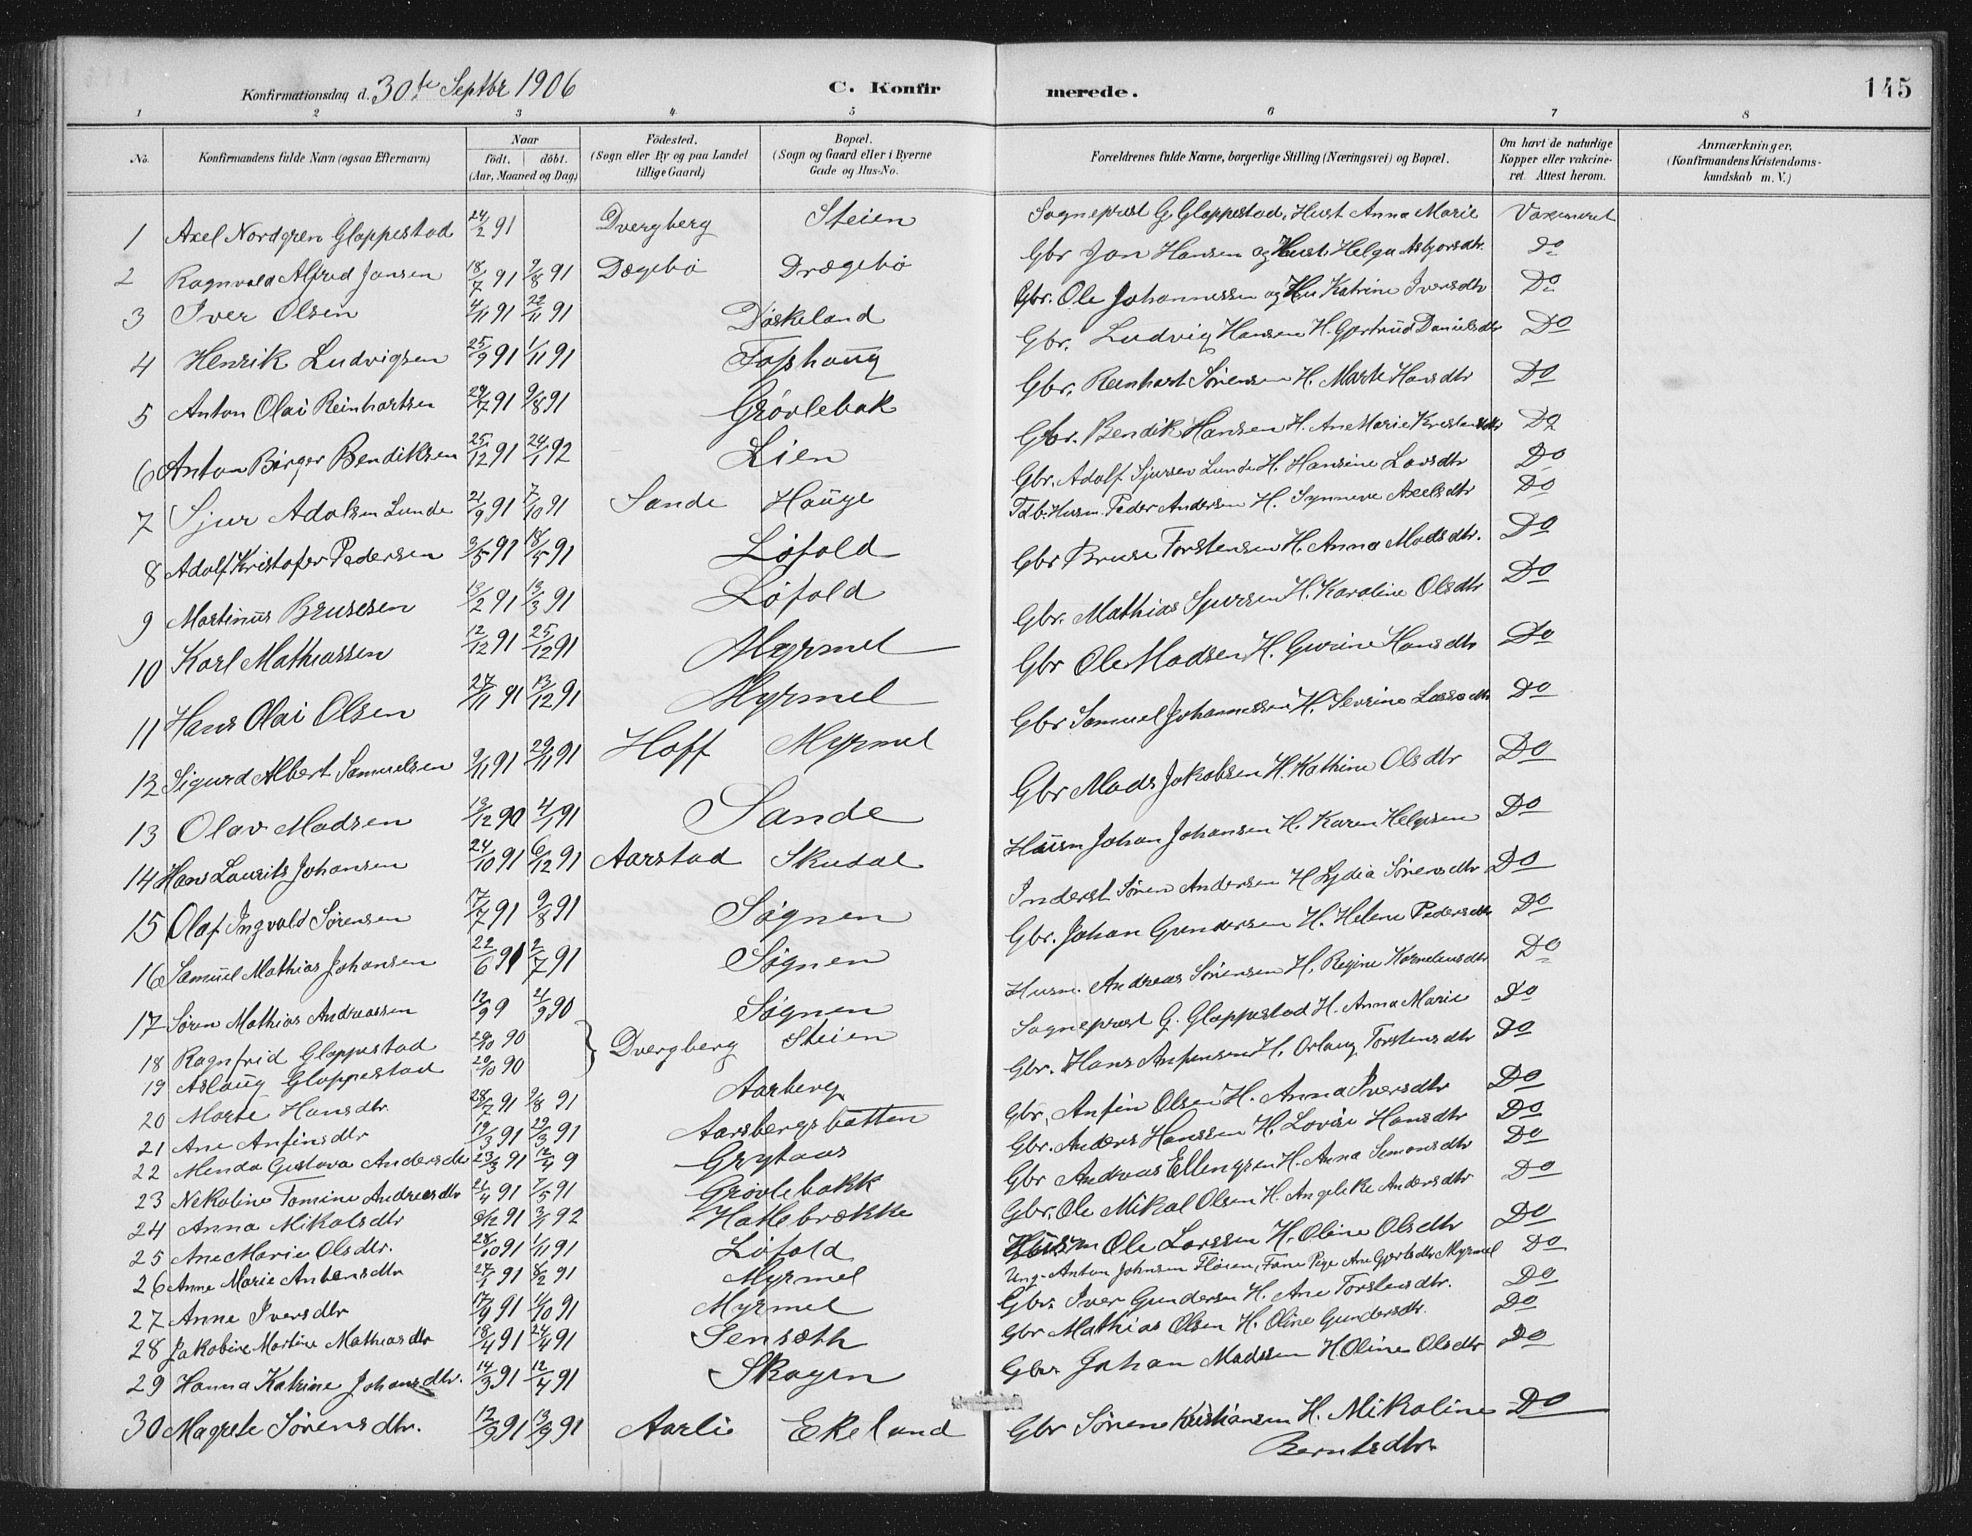 Konfirmationsdag d. 30.te Septbr 1906 C. Konfirmerede. 145
1 2 3 4 5 6 7 8
No. Konfirmandens fulde Navn (ogsaa Efternavn) Naar født. døbt. (Aar, Maaned og Dag) Fødested. (Sogn eller By og paa Landet tillige Gaard) Bopæl. (Sogn og Gaard eller i Byerne Gade og Hus-No. Forældrenes fulde Navne, borgerlige Stilling (Næringsvei) og Bopæl. Om havt de naturlige Kopper eller vakcineret. Attest herom. Anmærkninger. (Konfirmandens Kristendomskundskab m. V.)
1 Axel Nordgren Gloppestad 24/2 91 Dvergberg Steien Sogneprest G. Gloppestad, Hust Anna Marie Vaxineret
2 Ragnvald Alfred Jonsen 18/7 91 9/8 91 Dægebø Drægebø Gbr Jon Hansen og Hust. Helga Asbjorsdtr. Do
3 Iver Olsen 4/11 91 22/11 91 Døskeland Gbr. Ole Johannessen og Hu Katrine Iversdtr Do
4 Henrik Ludvigsen 25/9 91 1/11 91 Fosshaug Gbr. Ludvig Hansen H. Gjertrud Danielsdtr Do
5 Anton Olai Reinhartsen 29/7 91 9/8 91 Grøvlebak Gbr. Reinhart Sørensen H. Marte Hansdtr Do
6 Anton Birger Bendiksen 25/12 91 24/1 92 Lien Gbr. Bendik Hansen H. Ane Marie Do
7 Sjur Adolsen Lunde 21/9 91 7/10 91 Sande Hauge Gbr. Adolf Sjursen Lunde H. Hansine Larsdtr Do
8 Adolf Kristofer Pedersen 3/5 91 18/5 91 Løfold Husm. Peder Andersen H. Synneve Axelsdtr Do
9 Martinus Brusesen 13/2 91 13/3 91 Løfold Gbr Bruse Torstensen H. Anna Madsdtr. Do
10 Karl Mathiassen 12/12 91 25/12 91 Myrmel Gbr. Mathias Sjursen H. Karoline Olsdtr Do
11 Hans Olai Olsen 27/11 91 13/12 91 Myrmel Gbr Ole Madsen H. Gurine Hansdtr Do
12 Sigurd Albert Samuelsen 9/11 91 29/11 91 Hoff Myrmel Gbr Samuel Johannessen H. Severine Lassedtr Do
13 Olav Madsen 19/12 90 4/1 91 Sande Gbr Mads Jakobsen H. Kathrine Olsdtr Do
14 Hans Laurits Johansen 24/10 91 6/12 91 Aarstad Skudal Husm Johan Johansen H. Karen Helgesen Do
15 Olaf Ingvald Sørensen 17/7 91 9/8 91 Søgnen Inderst Søren Andersen H Lydia Sørensdtr Do
16 Samuel Mathias Johansen 22/6 91 2/7 91 Søgnen Gbr. Johan Gundersen H. Helene Pedersdtr Do
17 Søren Mathias Andreassen 12/9 9 21/9 90 Søgnen Husm. Andreas Sørensen H. Regine Kornelensdtr Do
18 Ragnfrid Gloppestad 20/10 90 Dvergberg Steien Sogneprest G. Gloppestad H. Anna Marie Do
19 Aslaug Gloppestad 20/10 90
20 Marte Hansdtr. 28/7 91 9/8 91 Aarberg Gbr. Hans Anfinsen H. Orlaug Torstensdtr Do
21 Ane Anfinsdtr 19/3 91 29/3 91 Aarsbergsbotten Gbr. Anfin Olsen H. Anna Iversdtr Do
22 Menda Gustava Andersdtr 23/3 91 12/4 9 Grytaas Gbr. Anders Hanssen H. Lovise Hansdtr Do
23 Nikoline Tomine Andreasdtr 21/4 91 7/5 91 Grøvlebakk Gbr Andreas Ellengsen H. Anna Simonsdtr Do
24 Anna Mikalsdtr 6/12 91 3/1 92 Hatlebrække Gbr. Ole Mikal Olsen H. Angelike Andersdtr Do
25 Ane Marie Olsdtr. 28/10 91 1/11 91 Løfold Husm Ole Larssen H. Oline Olsdtr Do
26 Anne Marie Antonsdtr 27/1 91 8/2 91 Myrmel Ung. Anton Johnsen Fløien, Pige Ane Gjertsdtr Myrmel Do
27 Anne Iversdtr 17/9 91 11/10 91 Myrmel Gbr. Iver Gundersen H. Ane Torstensdtr. Do
28 Jakobine Martine Mathiasdtr 18/4 91 24/4 91 Senseth Gbr Mathias Olsen H. Oline Gundersdtr. Do
29 Hanna Katrine Johansdtr. 14/3 91 12/4 91 Skogen Gbr Johan Madsen H Oline Olsdtr Do
30 Magrete Sørensdtr. 12/9 91 13/9 91 Aarlie Ekeland Gbr Søren Kristiansen H. Mikoline Do
Berntsdtr